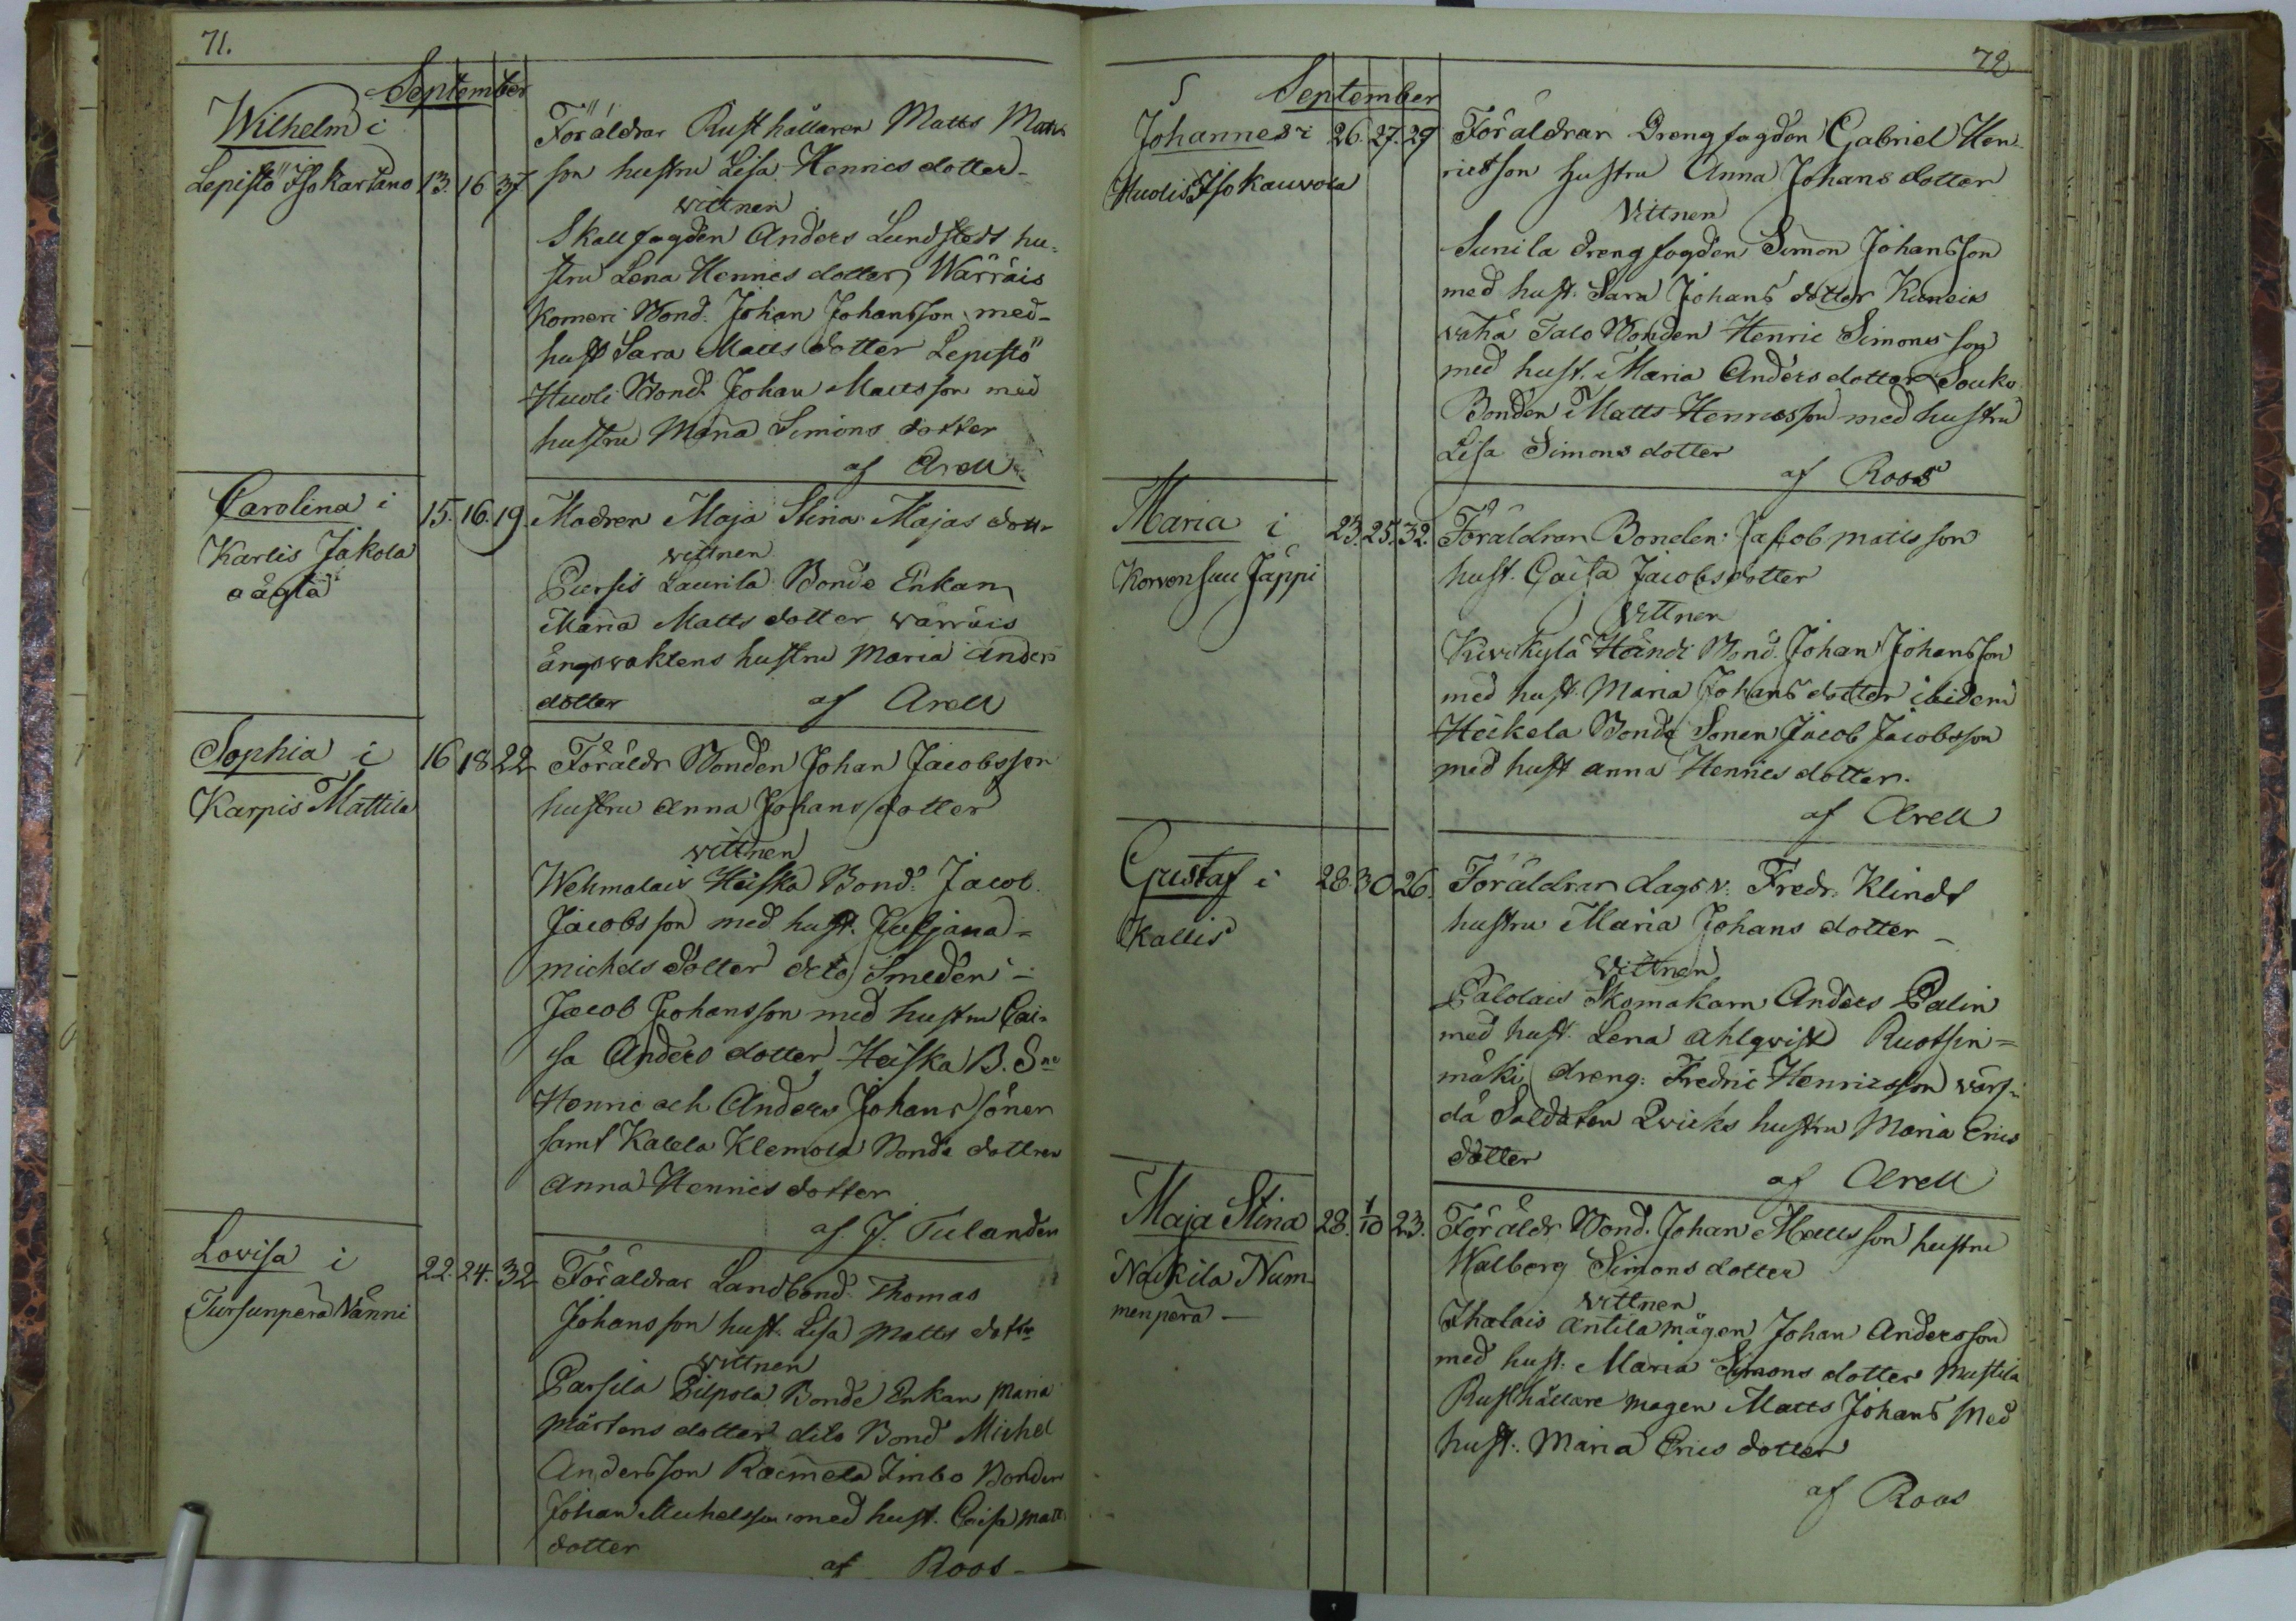 71.
September
Wilhelm i
Lepistö Iso Kartano 13. 16 37
Föräldrar Rusthållaren Matts Matts
son hustru Lisa Henrics dotter
vittnen
Skallfogden Anders Lundstedt hu-
stru Lena Henrics dotter, Wärräis
Komeri Bond. Johan Johansson med
hust Sara Matts dotter Lepistö
Huoli Bond. Johan Mattsson med
hustru Maria Simons dotter
af Arell
Carolina i
Karlis Jakola
oägta
15. 16. 19.
Modren Maja Stina Majas dottr
vittnen
Pursis Laurila Bonde Enkan
Maria Matts dotter wärräis
ängsvaktens hustru Maria Anders
dotter af Arell
Sophia i
Karpis Mattila
16 18 22
Föräldr Bonden Johan Jacobsson
hustru Anna Johans dotter
vittnen
Wehmalais Heiska Bond: Jacob
Jacobsson med hust. Juljana
michels dotter dito Smeden
Jacob Johansson med hustru Cai-
sa Anders dotter Heiska B. Sne
Henric och Anders Johans söner
samt Kalela Klemola Bonde dottren
Anna Henrics dotter
af J. Tulander
Lovisa i
Tursunperä Nänni
22. 24. 32
Föräldrar Landbond. Thomas
Johansson hust. Lisa Matts dottr
vittnen
Parsila Pilpola Bonde Enkan Maria
Mårtens dotter dito Bond Michel
Andersson Raimela Timbo Bonden
Johan Michelsson med hust. Caisa Matts
dotter
af Roos
72
September
Johannes i 26. 27. 29
Huolis Iso Kauvola
Föräldrar Drengfogden Gabriel Hen-
ricsson hustru Anna Johans dotter
Vittnen
Sunila drengfogden Simon Johansson
med hust. Sara Johans dotter
wähä Talo Bonden Henric Simonsson
med hust. Maria Anders dotter Souko
Bonden Matts Henricsson med hustru
Lisa Simons dotter
af Roos
Maria i
Korvensuu Jäppi
23. 25. 32.
Föräldrar Bonden: Jacob Mattsson
hust. Caisa Jacobs dotter
Vittnen
Kivikylä Heindi Bond. Johan Johansson
med hust. Maria Johans dotter ibidem
Heikela Bonde Sonen Jacob Jacobsson
med hust Anna Henrics dotter.
af Arell
Gustaf i
Kallis
28. 30 26.
Föräldrar dagsv. Fredr. Klindt
hustru Maria Johans dotter
Vittnen
Palolais Skomakarn Anders Palin
med hust. Lena Ahlqwist Ruotsin=
mäki dreng: Fredric Henricsson
då Soldaten Qvicks hustru Maria Erics
dotter
af Arell
Maja Stina
Naukila Num-
menpera
28. 1/10 23.
Föräldr Bond. Johan Mattsson hustru
Walborg Simons dotter
vittnen
Ihalais Antila mågen Johan Andersson
med hust. Maria Simons dotter Mustila
Rusthållare mågen Matts Johans Med
hust. Maria Erics dotter
af Roos